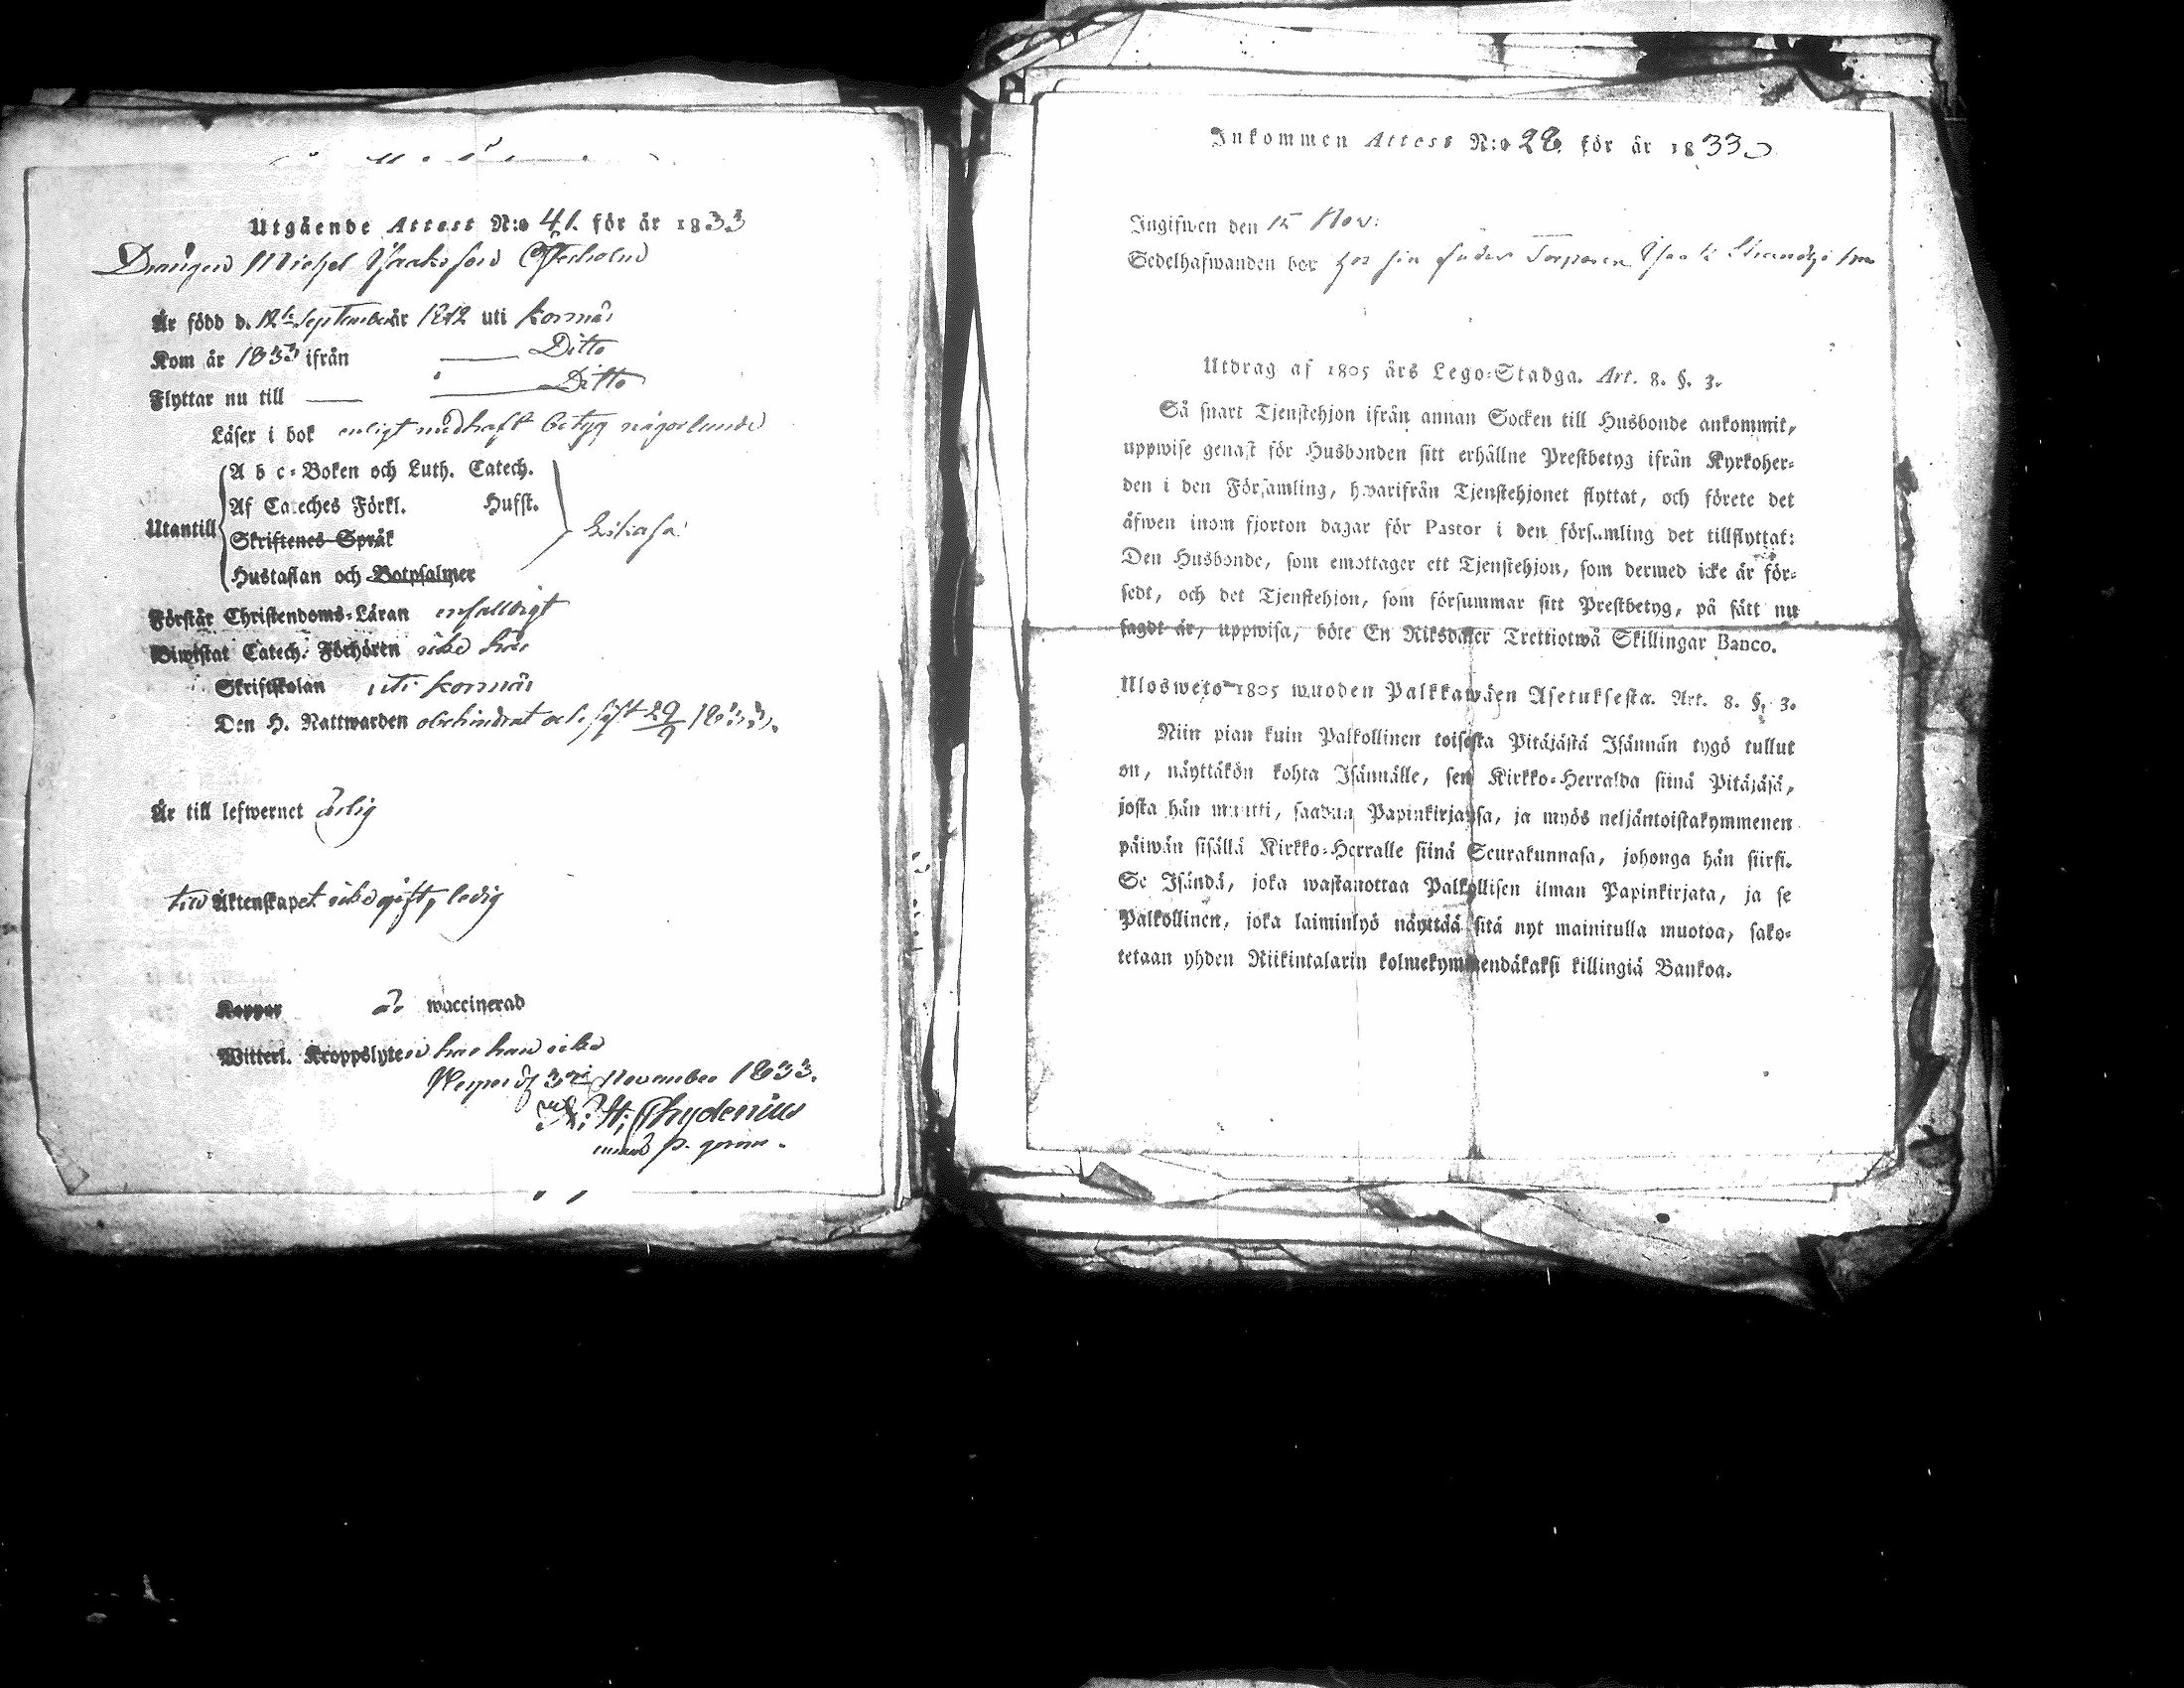 Utgående Attest N:o 41. för år 1833
Drängen Michel Isaaksson
Är född d. 12te September år 1812 uti Kornnäs
Kom år 1833 ifrån Ditto
Flyttar nu till Ditto
Läser i bok enligt medhaft betyg någorlunda
A b c-Boken och Luth. Catech.
Af Cateches Förkl. Hufst.
Utantill
Skriftenes Språk
Likaså
Hustaflan och Botpsalmer
Förstår Christendoms-Läran enfalldigt
Biwistat Catech. Förhören icke här
Skriftskolan uti Kornnäs
Den H. Nattwarden obehindrat och sist 29/9 1833.
Är till lefwernet ärlig
till Äktenskapet icke gift, ledig
Koppor waccinerad
Witterl. Kroppslyten har han icke
November 1833.
Chydenius
Inkommen Attest N:o 28 för år 1833
Ingifwen den 15 Nov:
Sedelhafwanden bor hos sin fader Torparen Isaak
Utdrag af 1805 års Lego-Stadga. Art. 8. §. 3.
Så snart Tjenstehjon ifrån annan Socken till Husbonde ankommit,
uppwise genast för Husbonden sitt erhållne Prestbetyg ifrån Kyrkoher-
den i den Församling, hwarifrån Tjenstehjonet flyttat, och förete det
äfwen inom fjorton dagar för Pastor i den församling det tillflyttat:
Den Husbonde, som emottager ett Tjenstehjon, som dermed icke är för-
sedt, och det Tjenstehjon, som försummar sitt Prestbetyg, på sätt nu
sagdt är, uppwisa, böte En Riksdaler Trettiotwå Skillingar Banco.
Ulosweto 1805 wuoden Palkkawäen Asetuksesta. Art. 8. §. 3.
Niin pian kuin Palkollinen toisesta Pitäjästä Isännän tygö tullut
on, näyttäkön kohta Isännälle, sen Kirkko-Herralda siinä Pitäjäsä,
josta hän muutti, saadun Papinkirjansa, ja myös neljäntoistakymmenen
päiwän sisällä Kirkko-Herralle siinä Seurakunnasa, johonga hän siirsi.
Se Isändä, joka wastanottaa Palkollisen ilman Papinkirjata, ja se
Palkollinen, joka laiminlyö näyttää sitä nyt mainitulla muotoa, sako-
tetaan yhden Riikintalarin kolmekymmendäkaksi killingiä Bankoa.